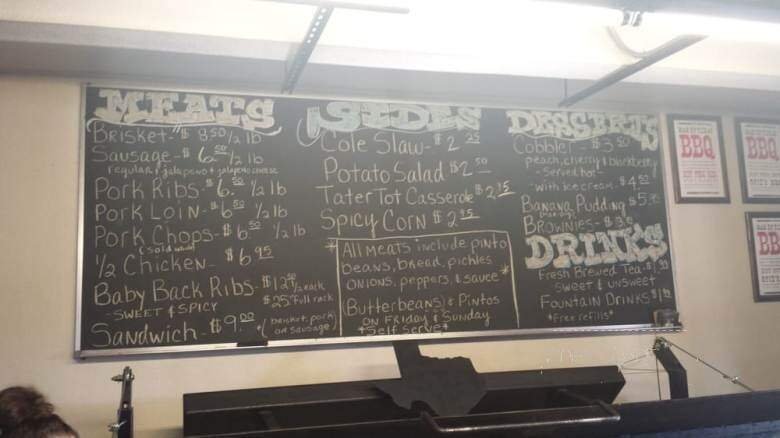 MEATS
BRISKET - $ 8.50 1/2 lb
Sausage - $ 6.50 1/2 lb
regular, jalapeno & jalapeno cheese
Pork Ribs - $ 6.50 1/2 lb
Pork Loin - $ 6.50 1/2 lb
Pork Chops - $ 6.50 1/2 lb
1/2 Chicken - $ 6.95
Baby Back Ribs - $ 12.50 1/2 rack
- SWEET & SPICY $ 25.00 full rack
Sandwich - $ 9.00 (brisket, pork or sausage)
SIDES
Cole Slaw - $ 2.25
Potato Salad $ 2.50
Tater Tot Casserole $ 2.75
Spicy Corn $ 2.75
*All Meats include pinto
beans, bread, pickles
onions, peppers, & sauce*
(Butterbeans) & Pintos
on Friday & Sunday
*Self Serve*
DESSERTS
Cobbler - $ 3.50
peach, cherry & blackberry
- Served hot -
- with ice cream - $ 4.50
Banana Pudding $ 5.25
Brownies - $
DRINKS
Fresh Brewed Tea - $ 1.99
SWEET & UNSWEET
Fountain Drinks $ 1.99
*Free refills*
BBQ
BBQ
BB